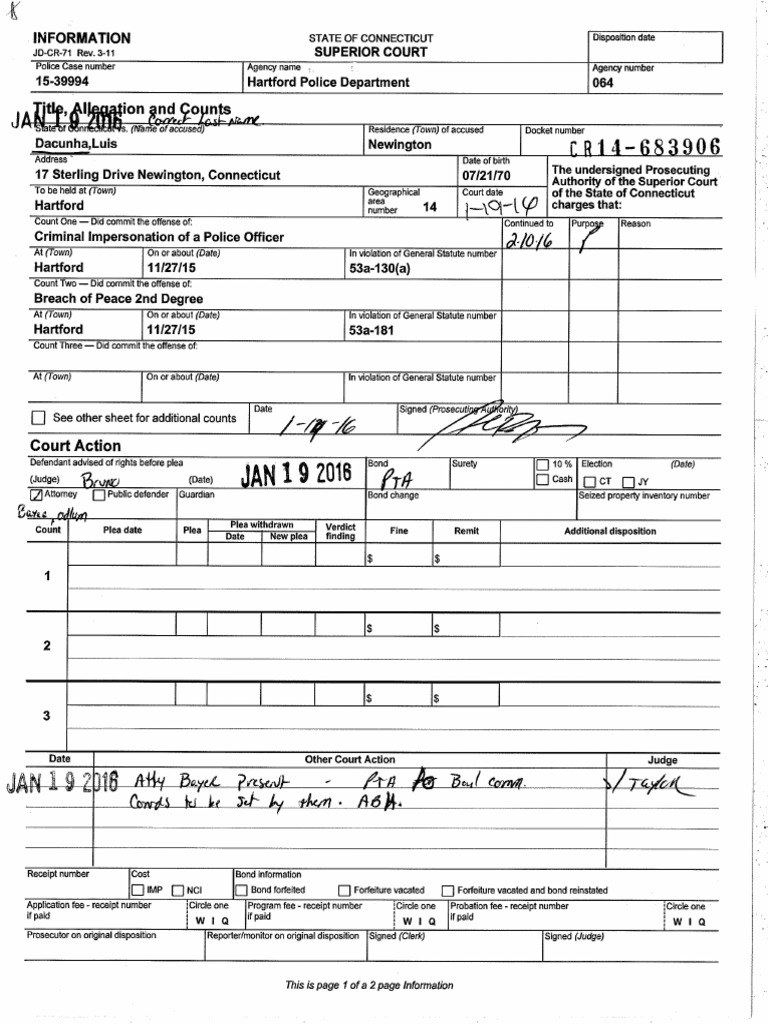 INFORMATION
JD-CR-71 Rev. 3-11
STATE OF CONNECTICUT
SUPERIOR COURT
Disposition date
Police Case number
15-39994
Agency name
Hartford Police Department
Agency number
064
Title, Allegation and Counts
JAN 19 2016 Correct Last Name
State of Connecticut vs. (Name of accused)
Dacunha,Luis
Residence (Town) of accused
Newington
Docket number
CR14-683906
Address
17 Sterling Drive Newington, Connecticut
Date of birth
07/21/70
The undersigned Prosecuting
Authority of the Superior Court
of the State of Connecticut
charges that:
To be held at (Town)
Hartford
Geographical
area
number 14
Court date
1-19-16
Count One — Did commit the offense of:
Criminal Impersonation of a Police Officer
Continued to
2-10-16
Purpose
P
Reason
At (Town)
Hartford
On or about (Date)
11/27/15
In violation of General Statute number
53a-130(a)
Count Two — Did commit the offense of:
Breach of Peace 2nd Degree
At (Town)
Hartford
On or about (Date)
11/27/15
In violation of General Statute number
53a-181
Count Three — Did commit the offense of:
At (Town)
On or about (Date)
In violation of General Statute number
See other sheet for additional counts
Date
1-19-16
Signed (Prosecuting Authority)
Court Action
Defendant advised of rights before plea
(Judge) Bruno (Date) JAN 19 2016
Bond
PTA
Surety
10 %
Cash
Election (Date)
CT JY
Attorney Public defender Guardian
Bond change
Seized property inventory number
Count
Plea date
Plea
Plea withdrawn
Date New plea
Verdict
finding
Fine
Remit
Additional disposition
1 $ $
2 $ $
3 $ $
Date Other Court Action Judge
JAN 19 2016 Atty Bayer Present - PTA Bail comm. Taylor
Conds to be set by them.
Receipt number
Cost
IMP NCI
Bond information
Bond forfeited Forfeiture vacated Forfeiture vacated and bond reinstated
Application fee - receipt number
if paid
Circle one
W I Q
Program fee - receipt number
if paid
Circle one
W I Q
Probation fee - receipt number
if paid
Circle one
W I Q
Prosecutor on original disposition
Reporter/monitor on original disposition
Signed (Clerk)
Signed (Judge)
This is page 1 of a 2 page Information